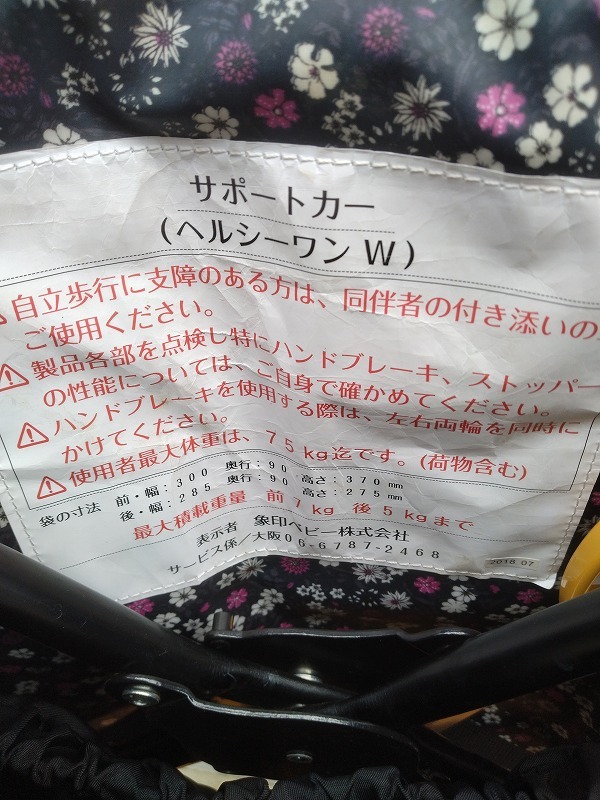 サポートカー
(ヘルシーワン W)
自立歩行に支障のある方は、同伴者の付き添いの
ご使用ください。
製品各部を点検し特にハンドブレーキ、ストッパー
の性能については、ご自身で確かめてください。
ハンドブレーキを使用する際は、左右両輪を同時に
かけてください。
使用者最大体重は、75kg迄です。(荷物含む)
袋の寸法 前・幅:300 奥行:90 高さ:370mm
後・幅:285 奥行:90 高さ:275mm
最大積載重量 前7kg 後5kgまで
表示者 象印ベビー株式会社
サービス係/大阪06-6787-2468
2018.07